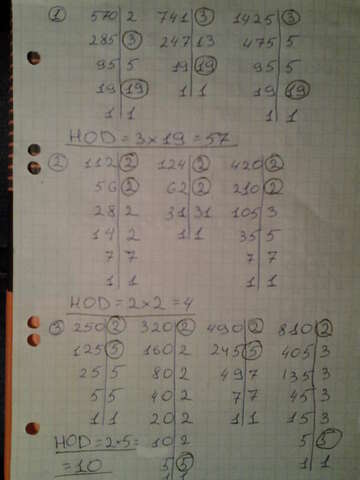 ① 570 | 2 741 | 3 1425 | 3
285 | 3 247 | 13 475 | 5
95 | 5 19 | 19 95 | 5
19 | 19 1 | 1 19 | 19
1 | 1 1 | 1
НОD = 3 × 19 = 57
② 112 | 2 124 | 2 420 | 2
56 | 2 62 | 2 210 | 2
28 | 2 31 | 31 105 | 3
14 | 2 1 | 1 35 | 5
7 | 7 7 | 7
1 | 1 1 | 1
НОD = 2 × 2 = 4
③ 250 | 2 320 | 2 490 | 2 810 | 2
125 | 5 160 | 2 245 | 5 405 | 3
25 | 5 80 | 2 49 | 7 135 | 3
5 | 5 40 | 2 7 | 7 45 | 3
1 | 1 20 | 2 1 | 1 15 | 3
НОD = 2 × 5 = 10 | 2 5 | 5
= 10 5 | 5 1 | 1
1 | 1